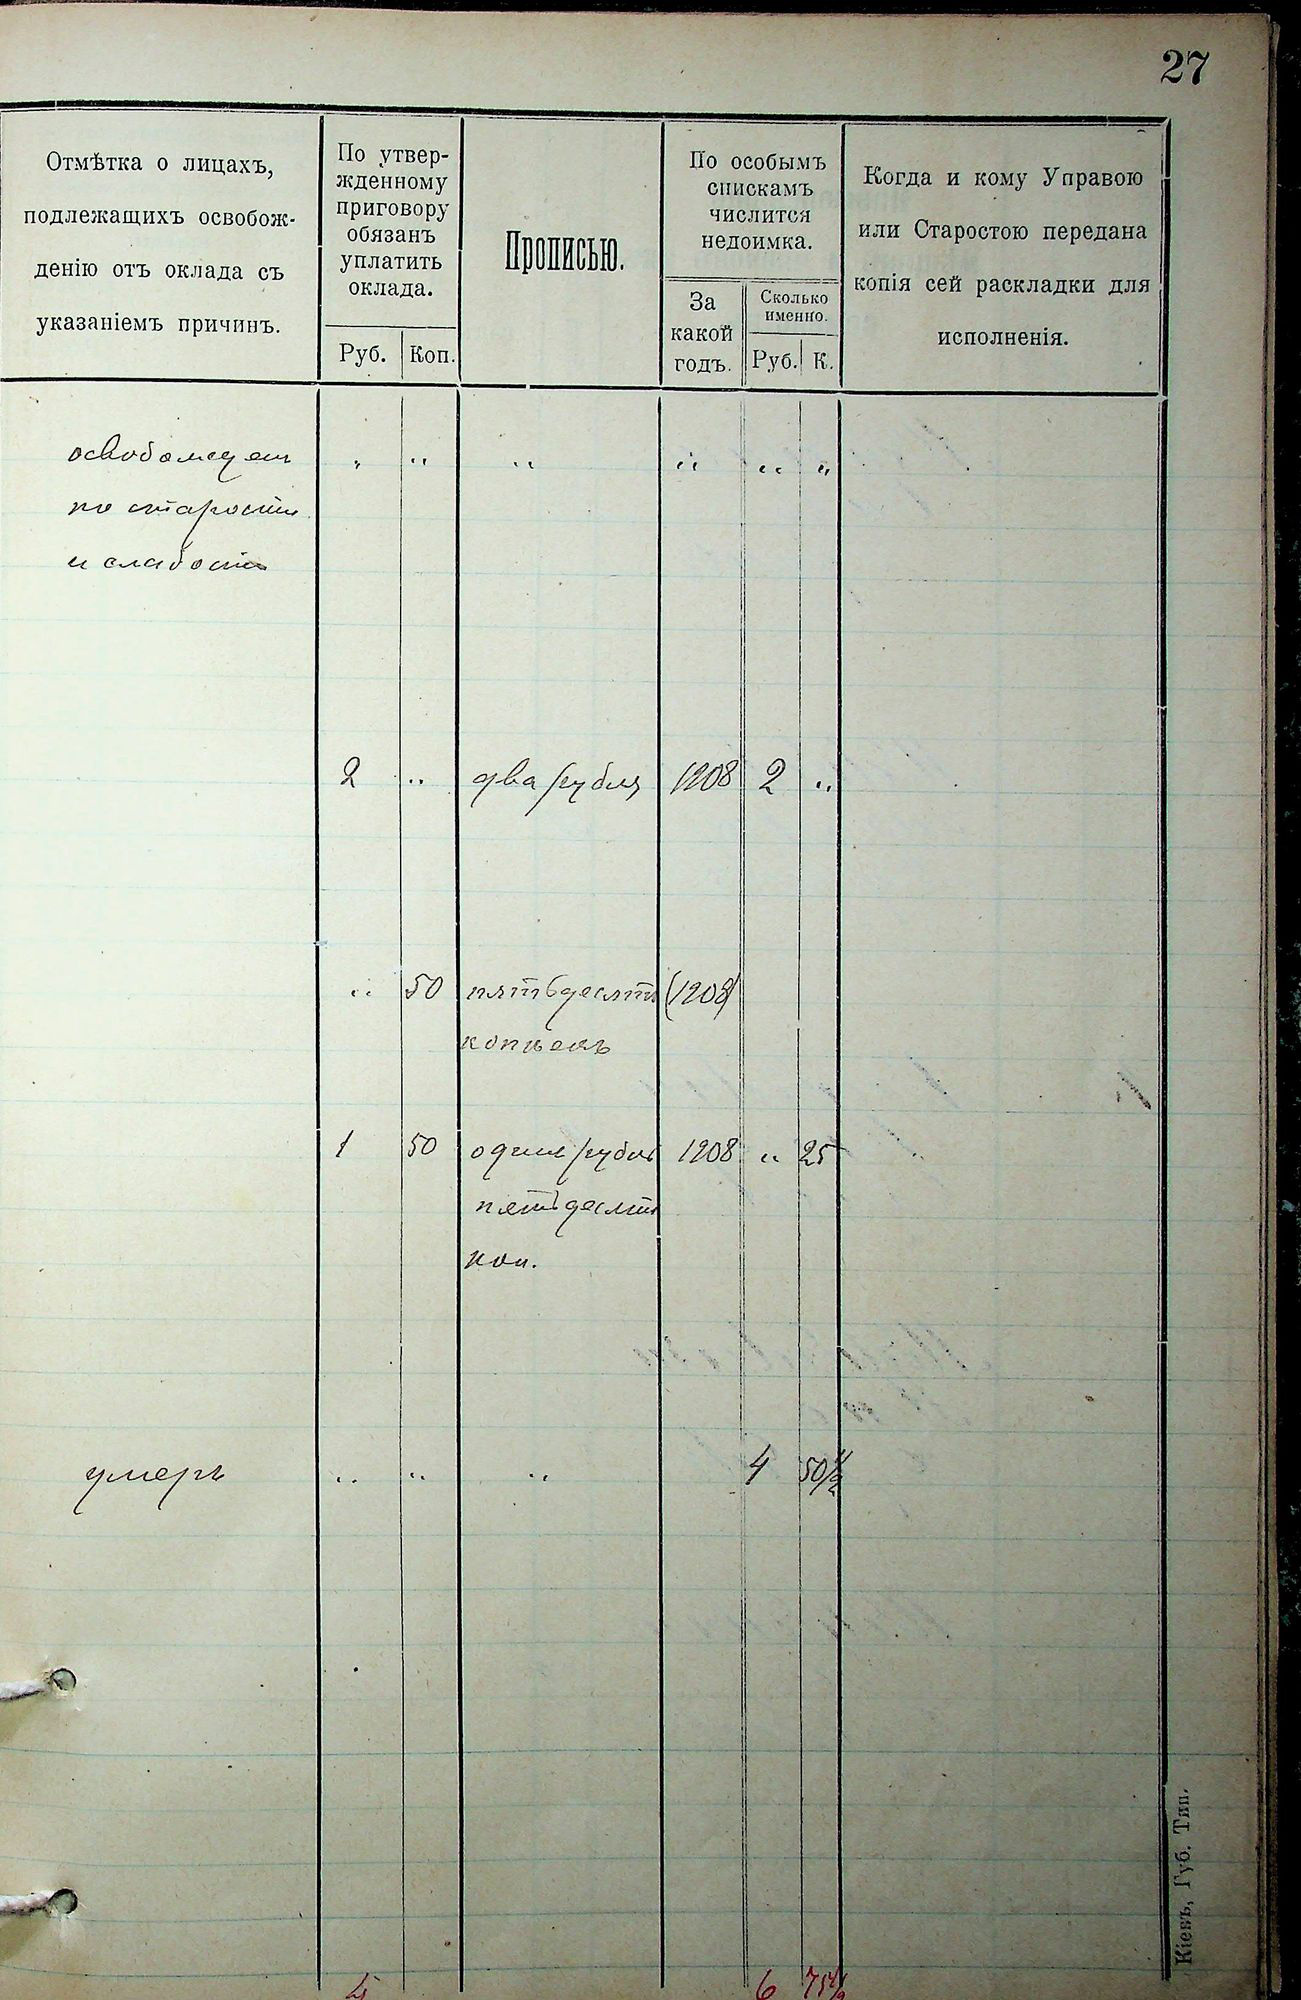 27
Отмѣтка о лицахъ,
подлежащихъ освобож-
денію отъ оклада съ
указаніемъ причинъ.
По утвер-
жденному
приговору
обязанъ
уплатить
оклада.
Руб. Коп.
Прописью.
По особымъ
спискамъ
числится
недоимка.
За
какой
годъ.
Сколько
именно.
Руб. К.
Когда и кому Управою
или Старостою передана
копія сей раскладки для
исполненія.
освобожден " " " " " "
по старости
и слабости
2 " два рубля 1908 2 "
" 50 пятьдесятъ (1908)
копѣекъ
1 50 один рубль 1908 " 25
пятьдесят
коп.
умеръ " " " 4 50 1/2
4 6 75 1/2
Кіевъ, Губ. Тип.